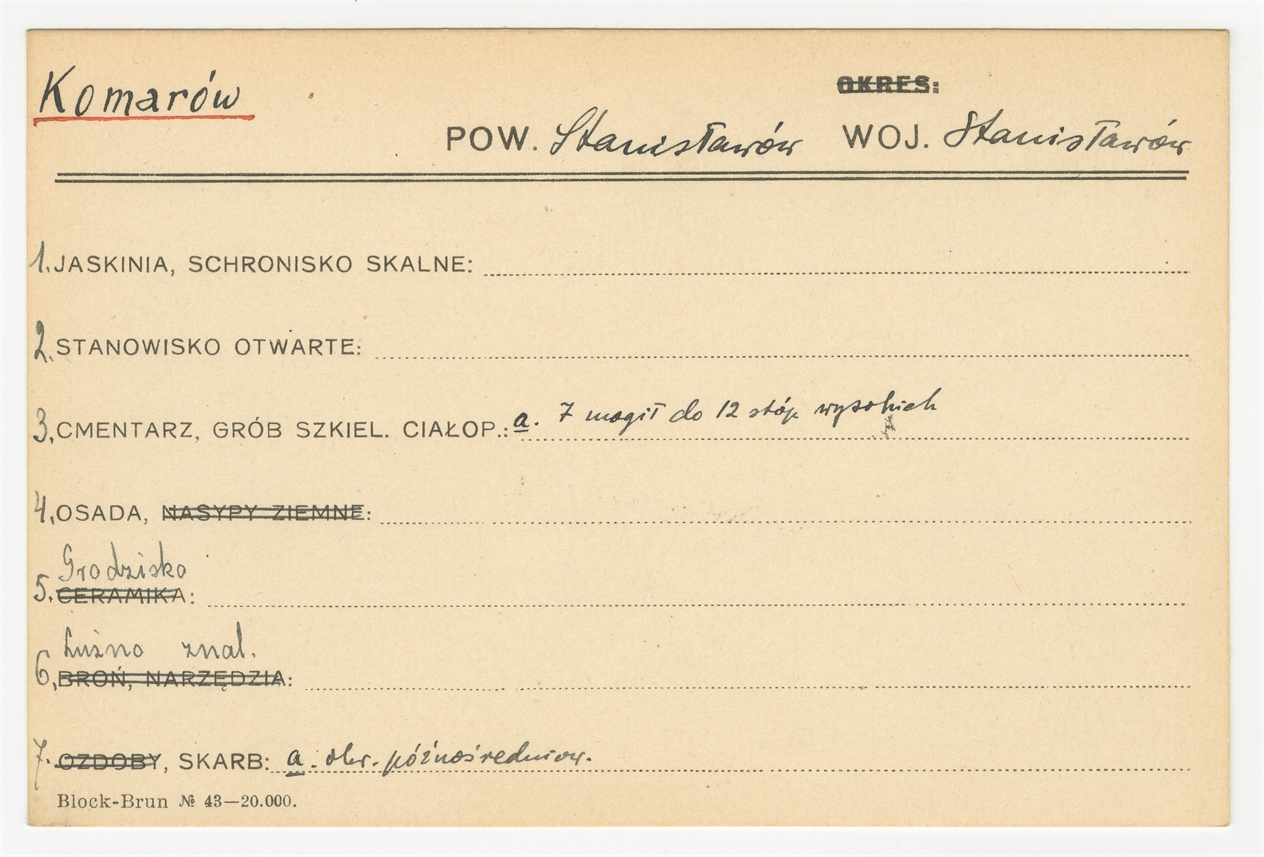 Komarów
OKRES:
POW. Stanisławów WOJ. Stanisławów
1. JASKINIA, SCHRONISKO SKALNE:
2. STANOWISKO OTWARTE:
3. CMENTARZ, GRÓB SZKIEL. CIAŁOP.: a. 7 mogił do 12 stóp wysokich
4. OSADA, NASYPY ZIEMNE:
Grodzisko
5. CERAMIKA:
Luźno znal.
6. BROŃ, NARZĘDZIA:
7. OZDOBY, SKARB: a. okr. późnośredniow.
Block-Brun № 43—20.000.